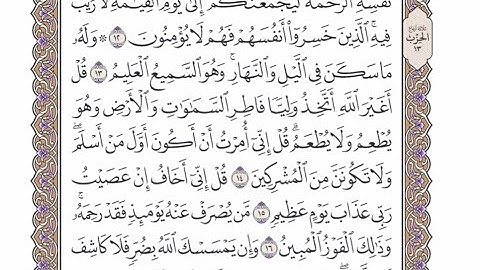 نَفْسِهِ ٱلرَّحْمَةَ لَيَجْمَعَنَّكُمْ إِلَىٰ يَوْمِ ٱلْقِيَٰمَةِ لَا رَيْبَ
فِيهِ ٱلَّذِينَ خَسِرُوٓا۟ أَنفُسَهُمْ فَهُمْ لَا يُؤْمِنُونَ ١٢ ۞ وَلَهُۥ
مَا سَكَنَ فِى ٱلَّيْلِ وَٱلنَّهَارِ وَهُوَ ٱلسَّمِيعُ ٱلْعَلِيمُ ١٣ قُلْ
أَغَيْرَ ٱللَّهِ أَتَّخِذُ وَلِيًّا فَاطِرِ ٱلسَّمَٰوَٰتِ وَٱلْأَرْضِ وَهُوَ
يُطْعِمُ وَلَا يُطْعَمُ ۗ قُلْ إِنِّىٓ أُمِرْتُ أَنْ أَكُونَ أَوَّلَ مَنْ أَسْلَمَ ۖ
وَلَا تَكُونَنَّ مِنَ ٱلْمُشْرِكِينَ ١٤ قُلْ إِنِّىٓ أَخَافُ إِنْ عَصَيْتُ
رَبِّى عَذَابَ يَوْمٍ عَظِيمٍ ١٥ مَّن يُصْرَفْ عَنْهُ يَوْمَئِذٍ فَقَدْ رَحِمَهُۥ ۚ
وَذَٰلِكَ ٱلْفَوْزُ ٱلْمُبِينُ ١٦ وَإِن يَمْسَسْكَ ٱللَّهُ بِضُرٍّ فَلَا كَاشِفَ
ٱلْحِزْبُ
١٣